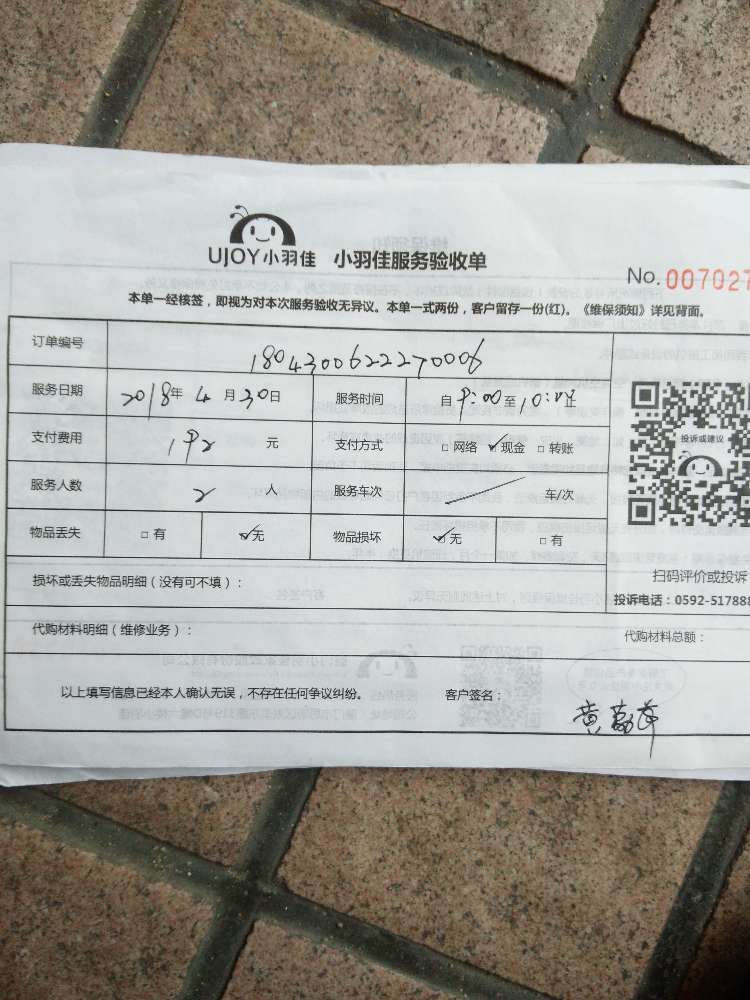 UJOY小羽佳 小羽佳服务验收单
No. 007027
本单一经核签,即视为对本次服务验收无异议。本单一式两份,客户留存一份(红)。《维保须知》详见背面。
订单编号 1804300622270006
服务日期 2018年 4 月 30日 服务时间 自 9:00 至
支付费用 192 元 支付方式 □ 网络 ☑现金 □ 转账
投诉或建议
服务人数 2 人 服务车次 / 车/次
物品丢失 □ 有 ☑无 物品损坏 ☑无 □ 有
扫码评价或投诉
损坏或丢失物品明细(没有可不填):
投诉电话:0592-517888
代购材料明细(维修业务): 代购材料总额:
以上填写信息已经本人确认无误,不存在任何争议纠纷。 客户签名:
黄